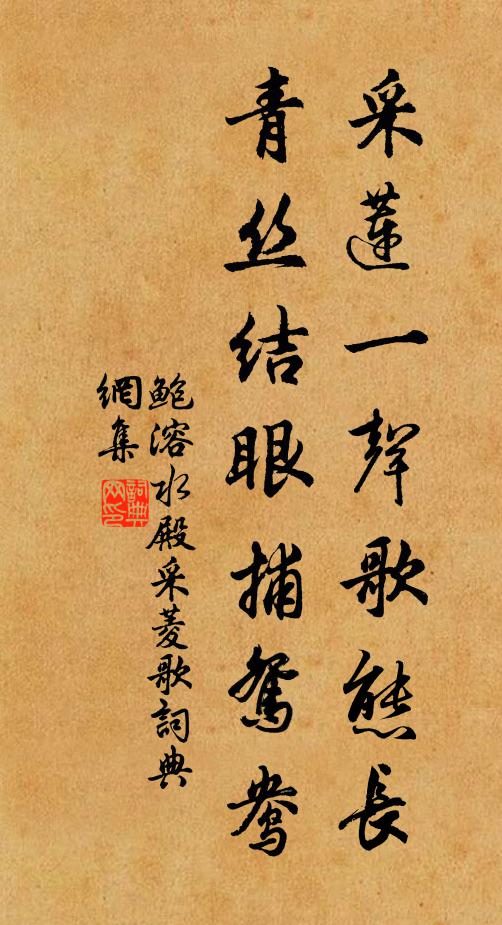 采蓮一聲歌態長
青丝結眼捕鴛鴦
鮑溶水殿采菱歌詞典
網集
詞典
网印